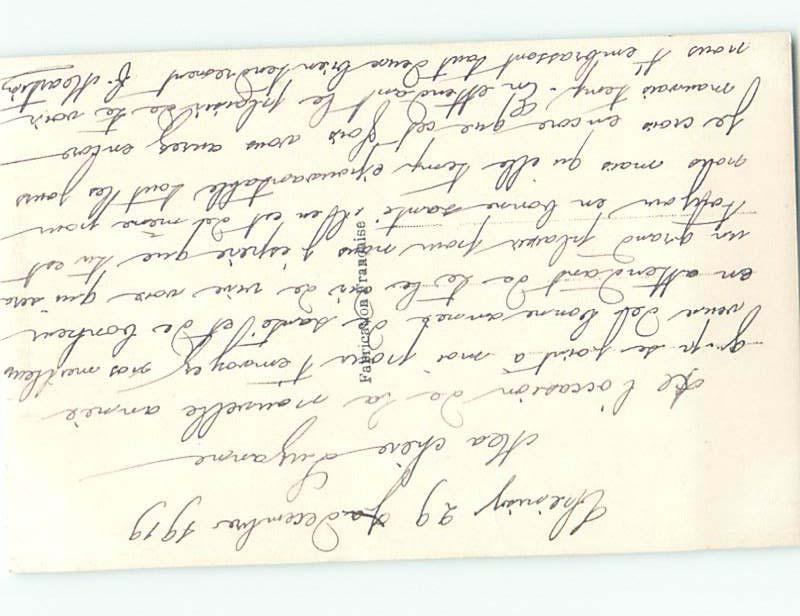 29 decembre 1919
Ma chère Suzanne
A l'occasion de la nouvelle année
se joint a moi pour t'envoyer nos meilleur
veux de bonne année de santé et de bonheur
en attendant de te les dire de vive voix qui sera
un grand plaisir pour nous j'espère que tu est
toujour en bonne santé il en est de même pour
nous mais qu'elle temp épouvantable tout les jours
Je crois encore que cet fois vous aurez encore
mauvais temp. En attendant le plaisir de te voir
nous t'embrassont tout deux bien tendrement Martin
Fabrication Française